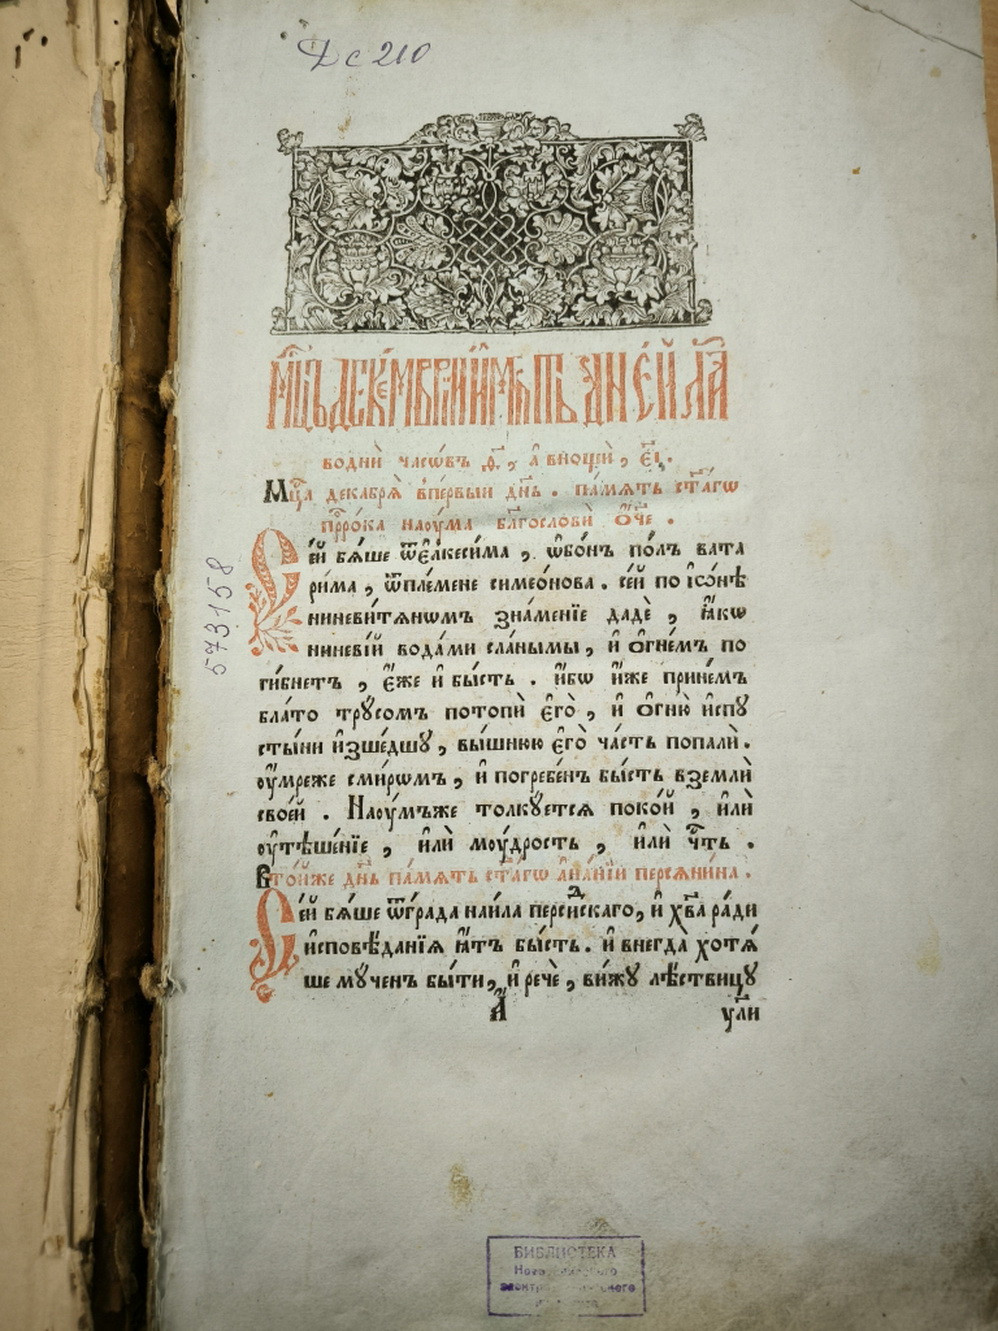 Дс 210
мⷭ҇цъ декемврїй и҆мѣетъ дней л҃а
воднѝ часѡ́въ ѳ҃, а҆ внощѝ, є҃і.
Мцⷭ҇а декабрѧ̀ впе́рвыи дн҃ь. па́мѧть ст҃а́гѡ
прⷪ҇ро́ка нао́ума бл҃гословѝ ѻ҆́ч҃е.
Се́й бѧ́ше ѿе҆лкеси́ма, ѡ҆бо́нъ по́лъ вата
ри́ма, ѿпле́мене симео́нова. се́й по і҆ѡ́нѣ
ниневи́тѧнѡмъ зна́менїе дадѐ, ꙗ҆́кѡ
ниневі́й вода́ми сла́ными, и҆ ѻ҆гне́мъ по
ги́бнетъ, є҆́же и҆ бы́сть. и҆́бѡ и҆́же прине́мъ
бла́то трꙋ́сомъ потопѝ є҆го̀, и҆ ѻ҆гню̀ и҆спꙋ
сты́ни и҆зше́дшꙋ, вы́шнюю є҆го̀ ча́сть попалѝ.
оу҆́мреже сми́рѡмъ, и҆ погребе́нъ бы́сть вземлѝ
свое́й. Наоу́мъже толкꙋ́етсѧ поко́й, и҆лѝ
оу҆тѣше́нїе, и҆лѝ моу́дрость, и҆лѝ чⷭ҇ть.
Вто́йже дн҃ь па́мѧть ст҃а́гѡ а҆на́нїи персѧни́на.
Се́й бѧ́ше ѿгра́да наи́ла перси́дскаго, и҆ хрⷭ҇та̀ ра́ди
и҆сповѣ́данїѧ ꙗ҆́тъ бы́сть. и҆ внегда̀ хотѧ́
ше мꙋ́ченъ бы́ти, и҆ речѐ, ви́жꙋ лѣ́ствицꙋ
а҃
ꙋли
573158
БИБЛИОТЕКА